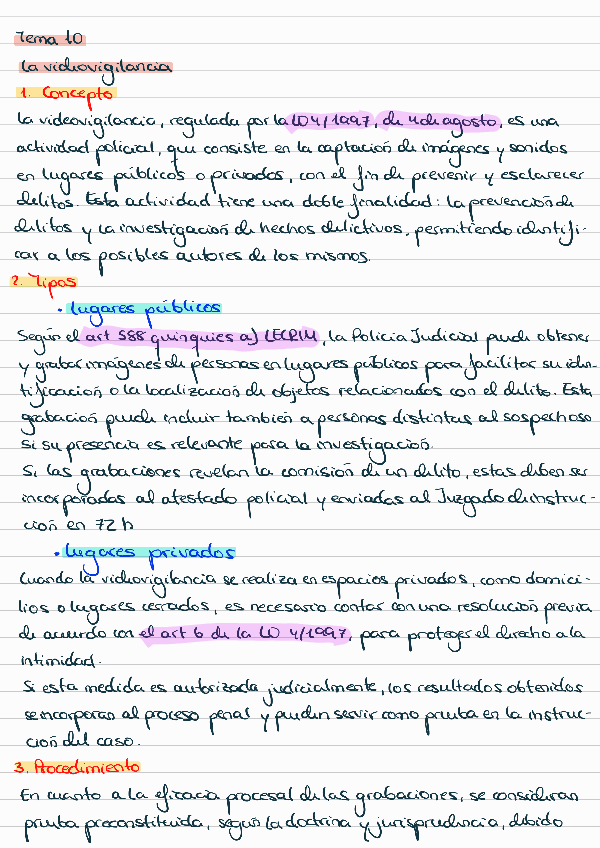 Tema 10
La videovigilancia
1. Concepto
La videovigilancia, regulada por la LO 4/1997, de 4 de agosto, es una
actividad policial, que consiste en la captación de imágenes y sonidos
en lugares públicos o privados, con el fin de prevenir y esclarecer
delitos. Esta actividad tiene una doble finalidad: la prevención de
delitos y la investigación de hechos delictivos, permitiendo identifi-
car a los posibles autores de los mismos.
2. Tipos
• Lugares públicos
Según el art 588 quinquies a) LECRIM, la Policia Judicial puede obtener
y grabar imágenes de personas en lugares públicos para facilitar su iden-
tificación o la localización de objetos relacionados con el delito. Esta
grabación puede incluir también a personas distintas al sospechoso
si su presencia es relevante para la investigación.
Si las grabaciones revelan la comisión de un delito, estas deben ser
incorporadas al atestado policial y enviadas al Juzgado de instruc-
ción en 72 h
• Lugares privados
Cuando la videovigilancia se realiza en espacios privados, como domici-
lios o lugares cerrados, es necesario contar con una resolución previa
de acuerdo con el art 6 de la LO 4/1997, para proteger el derecho a la
intimidad.
Si esta medida es autorizada judicialmente, los resultados obtenidos
se incorporan al proceso penal y pueden servir como prueba en la instruc-
ción del caso.
3. Procedimiento
En cuanto a la eficacia procesal de las grabaciones, se consideran
prueba preconstituida, según la doctrina y jurisprudencia, debido